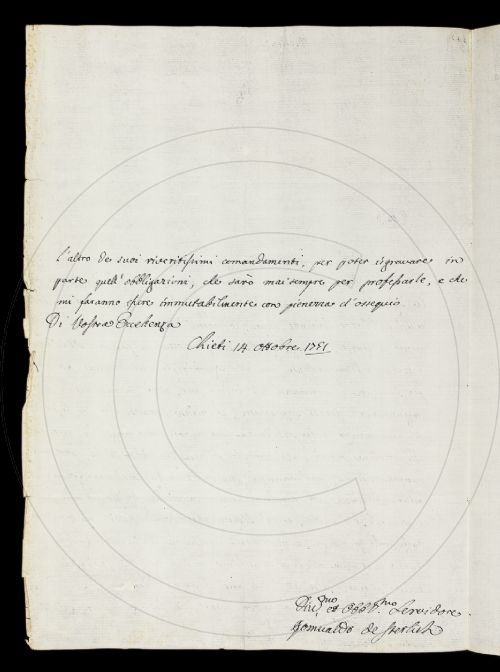 l'altro de suoi riveritissimi comandamenti, per poter isgravare in
parte quell'obbligazioni, che sarò mai sempre per professarle, e che
mi faranno essere immutabilmente con pienezza d'ossequio
Di Vostra Eccellenza
Chieti 14 ottobre 1751
Div.mo ed Obbl.mo Servidore
Romualdo de Sterlich